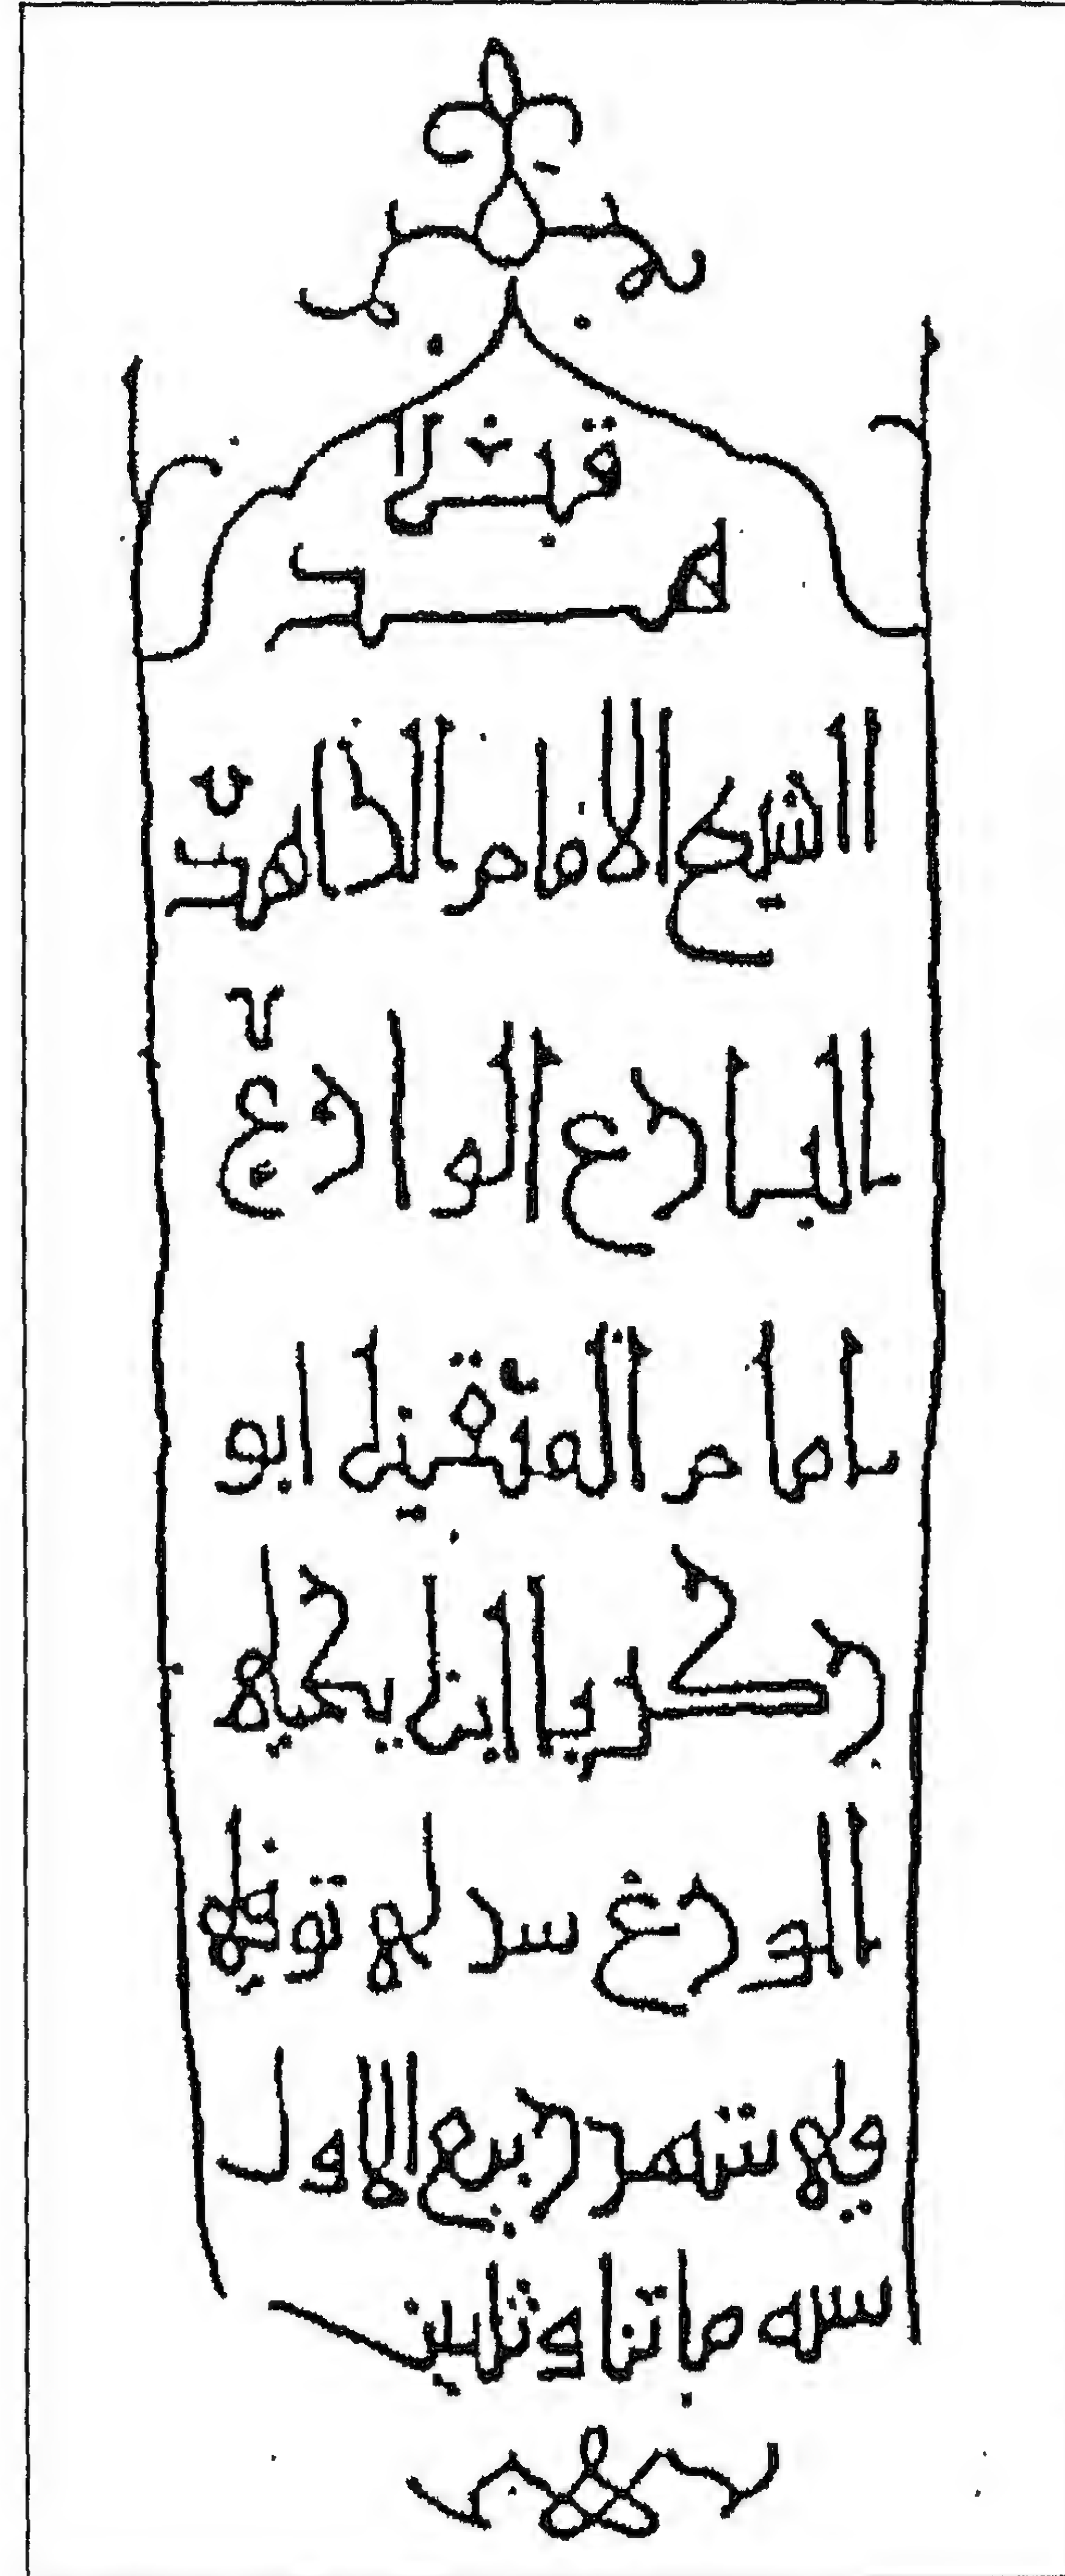 الشيخ الامام الزاهد
البارع الوارع
امام المتقين ابو
زكريا ابن يحيى
الورغ سدلى توفى
فى شهر ربيع الاول
سنه ماتنا وثلثين